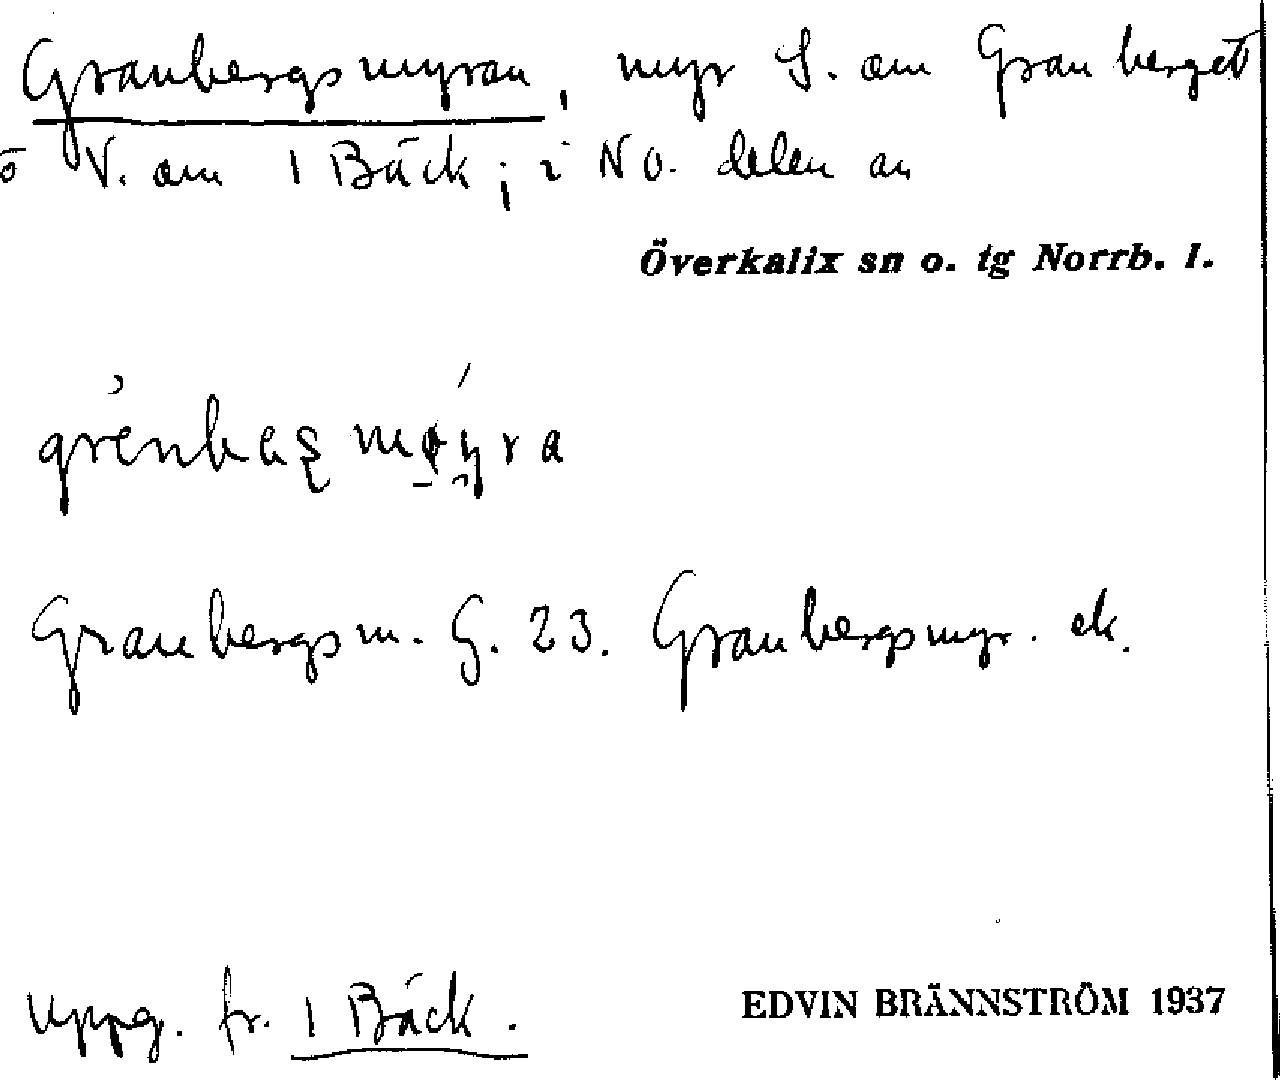 Granbergsmyran, myr S. om Granberget
o V. om 1 Bäck; i NO. delen av
Överkalix sn o. tg Norrb. l.
Granbergsm. G. 23. Granbergsmyr. ek.
Uppg. fr. 1 Bäck.
EDVIN BRÄNNSTRÖM 1937